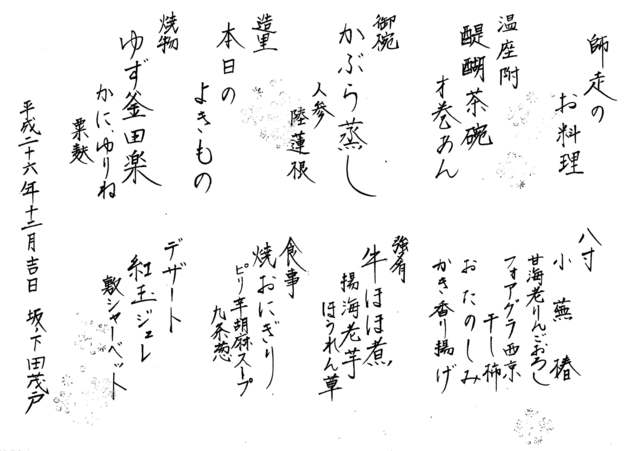 師走の
お料理
温座附
醍醐茶碗
才巻あん
御椀
かぶら蒸し
人参
陸蓮根
造里
本日の
よきもの
焼物
ゆず釜田楽
かにゆりね
粟麩
八寸
小蕪椿
甘海老りんごおろし
フォアグラ西京
干し柿
おたのしみ
かき香り揚げ
強肴
牛ほほ煮
揚海老芋
ほうれん草
食事
焼おにぎり
ピリ辛胡麻スープ
九条葱
デザート
紅玉ジュレ
敷シャーベット
平成二十六年十二月吉日 坂下田茂戸